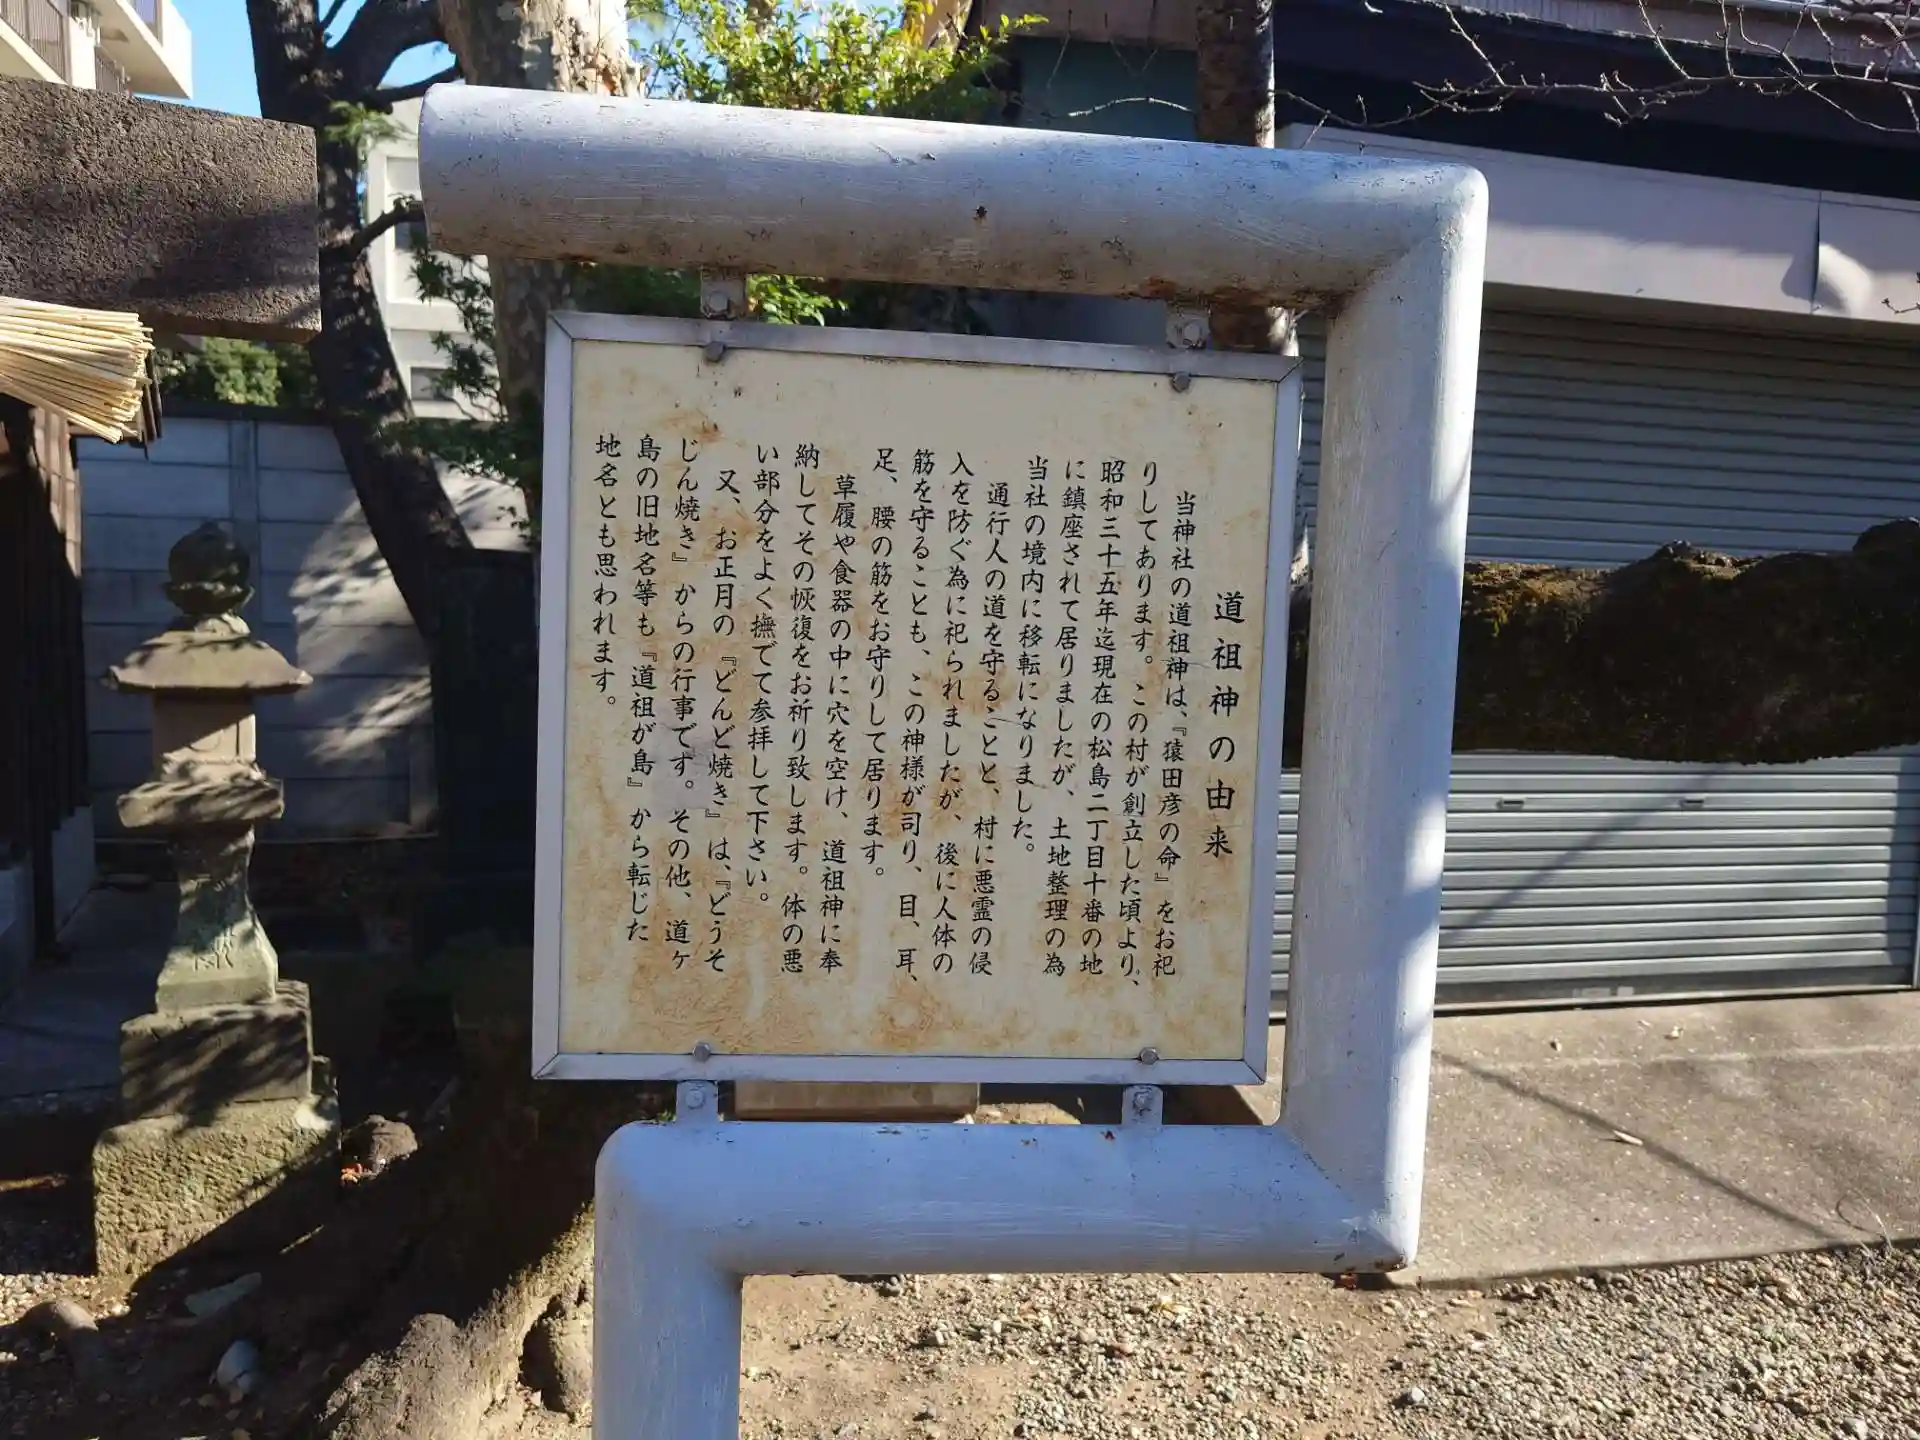 道祖神の由来
当神社の道祖神は、『猿田彦の命』をお祀
りしてあります。この村が創立した頃より、
昭和三十五年迄現在の松島二丁目十番の地
に鎮座されて居りましたが、土地整理の為
当社の境内に移転になりました。
通行人の道を守ることと、村に悪霊の侵
入を防ぐ為に祀られましたが、後に人体の
筋を守ることも、この神様が司り、目、耳、
足、腰の筋をお守りして居ります。
草履や食器の中に穴を空け、道祖神に奉
納してその恢復をお祈り致します。体の悪
い部分をよく撫でて参拝して下さい。
又、お正月の『どんど焼き』は、『どうそ
じん焼き』からの行事です。その他、道ヶ
島の旧地名等も『道祖が島』から転じた
地名とも思われます。